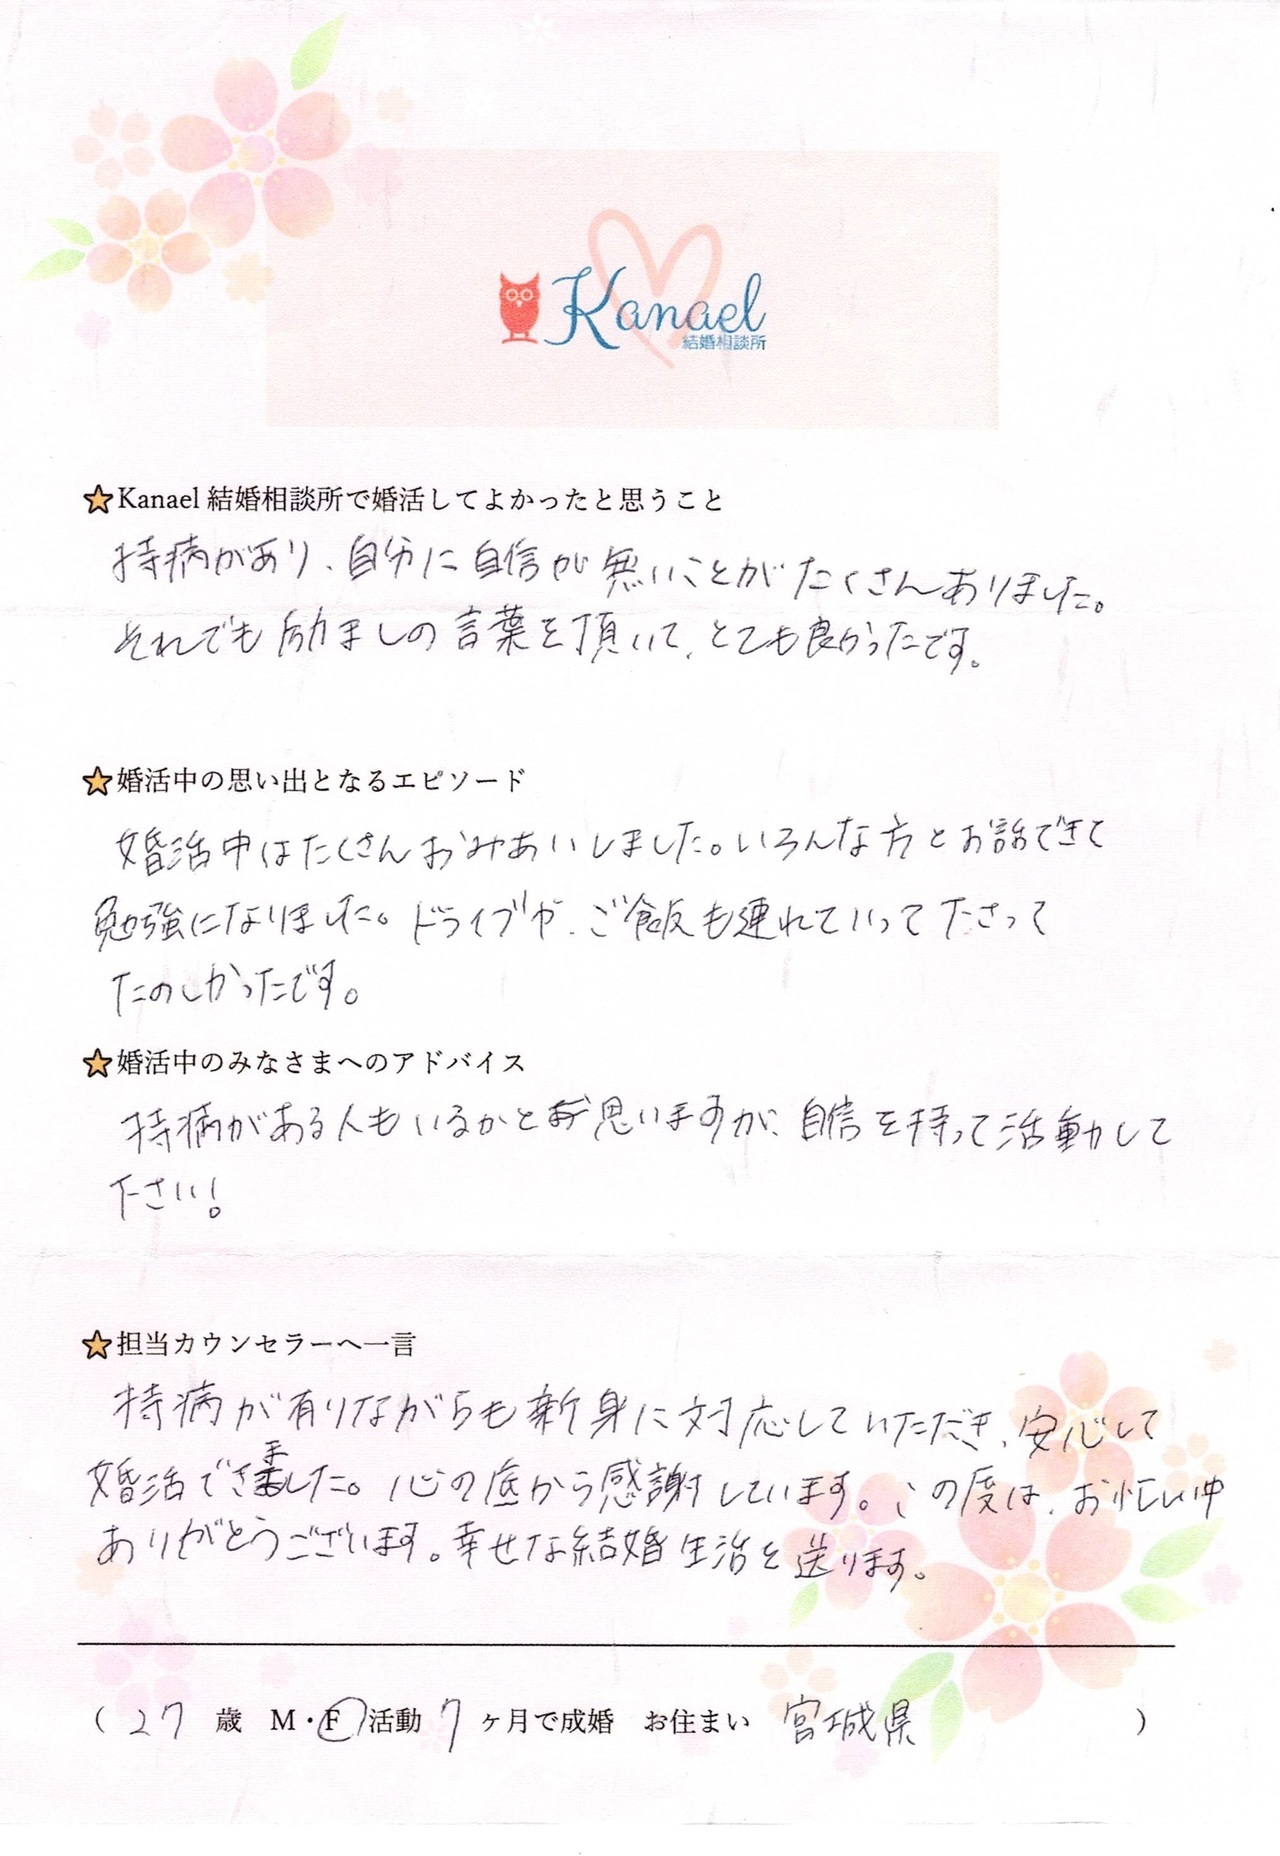 Kanael
結婚相談所
Kanael 結婚相談所で婚活してよかったと思うこと
持病があり、自分に自信が無いことがたくさんありました。
それでも励ましの言葉を頂いて、とても良かったです。
婚活中の思い出となるエピソード
婚活中はたくさんおみあいしました。いろんな方とお話できて
勉強になりました。ドライブや、ご飯も連れていって下さって
たのしかったです。
婚活中のみなさまへのアドバイス
持病がある人もいるかと思いますが、自信を持って活動して
下さい!
担当カウンセラーへ一言
持病が有りながらも新身に対応していただき、安心して
婚活できました。心の底から感謝しています。この度は、お忙しい中
ありがとうございます。幸せな結婚生活を送ります。
( 27 歳 M・F 活動 7 ヶ月で成婚 お住まい 宮城県 )